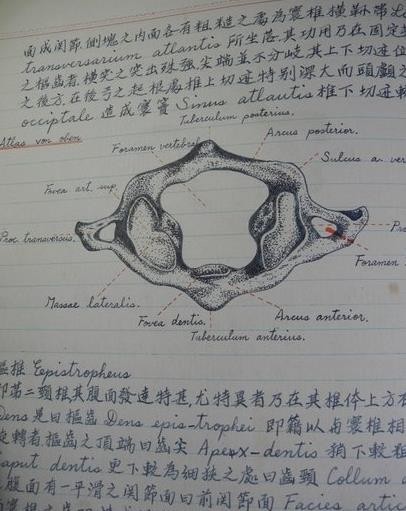 面成关节.侧塊之内面各有粗糙之處為寰椎横靱带
transversarium atlantis 所坐落.其功用乃在固定
之樞齒者.横突之突出殊强尖端並不分岐.其上下切迹
之後方.在後弓之起根處椎上切迹特别深大而頭顱之
occiptale 造成寰竇 Sinus atlautis 椎下切迹
Tuberculum posterius.
Atlas von oben
Foramen vertebral
Arcus posterior.
Sulcus a. ver
Fovea art. sup.
Proc. transversus.
Foramen
Massae lateralis.
Fovea dentis.
Arcus anterior.
Tuberculum anterius.
樞椎 Eepistropheus
即第二頸椎其腹面發達特甚.尤特異者乃在其椎体上方
Dens 是曰樞齒 Dens epis-trophei 即籍以与寰椎相
旋轉者樞齒之頂端曰齒尖 Apex-dentis 稍下較粗
caput dentis 更下較為細狹之處曰齒頸 Collum
腹面有一平滑之关節面曰前关節面 Facies artic